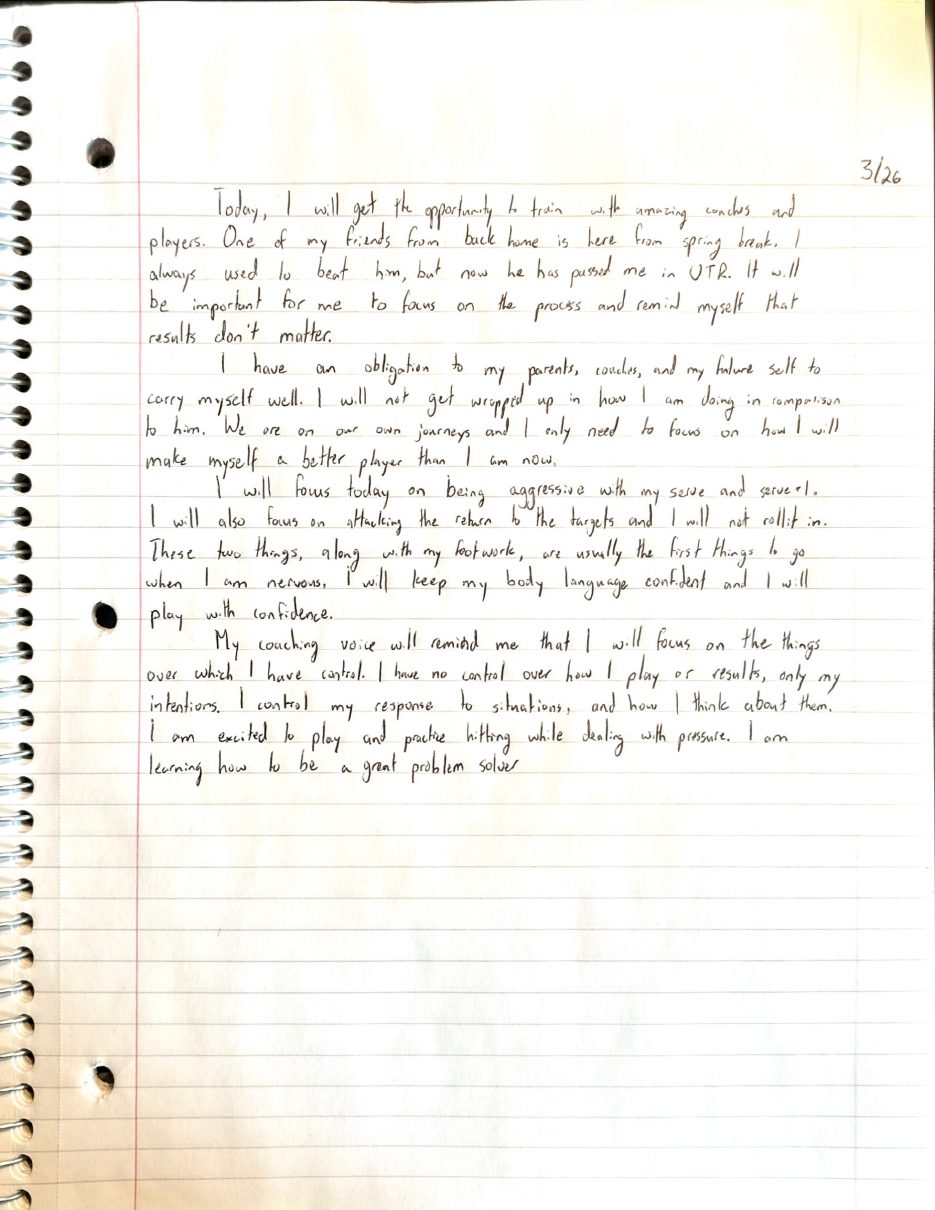 3/26
Today, I will get the opportunity to train with amazing coaches and
players. One of my friends from back home is here from spring break. I
always used to beat him, but now he has passed me in UTR. It will
be important for me to focus on the process and remind myself that
results don't matter.
I have an obligation to my parents, coaches, and my future self to
carry myself well. I will not get wrapped up in how I am doing in comparison
to him. We are on our own journeys and I only need to focus on how I will
make myself a better player than I am now.
I will focus today on being aggressive with my serve and serve+1.
I will also focus on attacking the return to the targets and I will not roll it in.
These two things, along with my footwork, are usually the first things to go
when I am nervous. I will keep my body language confident and I will
play with confidence.
My coaching voice will remind me that I will focus on the things
over which I have control. I have no control over how I play or results, only my
intentions. I control my response to situations, and how I think about them.
I am excited to play and practice hitting while dealing with pressure. I am
learning how to be a great problem solver